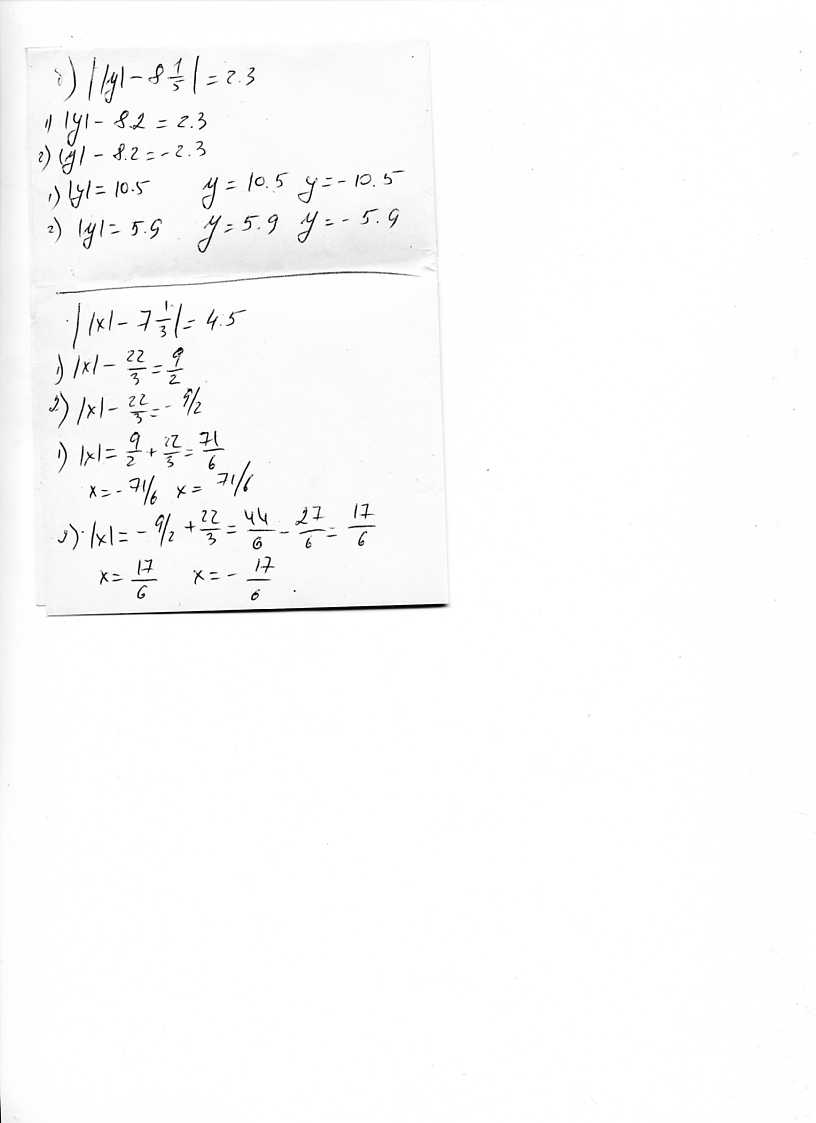 б) ||y| - 8 1/5| = 2.3
1) |y| - 8.2 = 2.3
2) |y| - 8.2 = - 2.3
1) |y| = 10.5 y = 10.5 y = - 10.5
2) |y| = 5.9 y = 5.9 y = - 5.9
||x| - 7 1/3| = 4.5
1) |x| - 22/3 = 9/2
2) |x| - 22/3 = - 9/2
1) |x| = 9/2 + 22/3 = 71/6
x = - 71/6 x = 71/6
2) |x| = - 9/2 + 22/3 = 44/6 - 27/6 = 17/6
x = 17/6 x = - 17/6